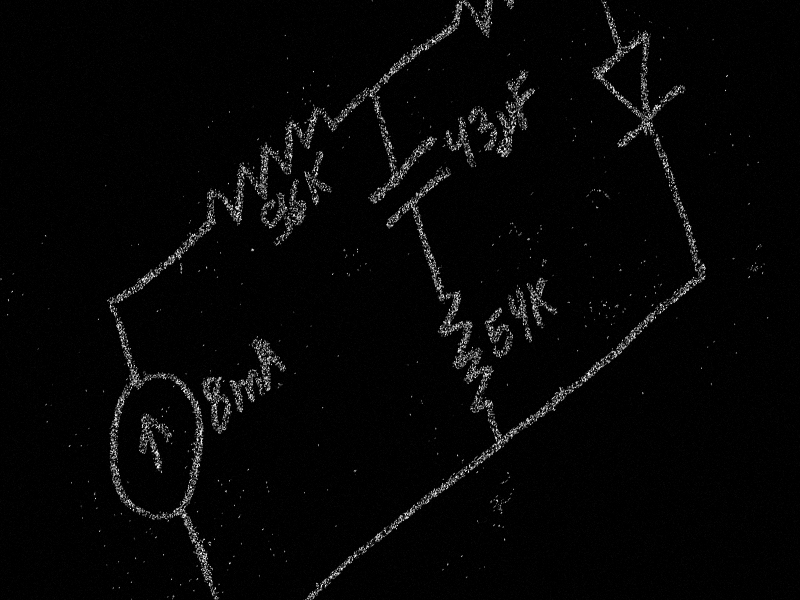 96K
43µF
54K
8mA